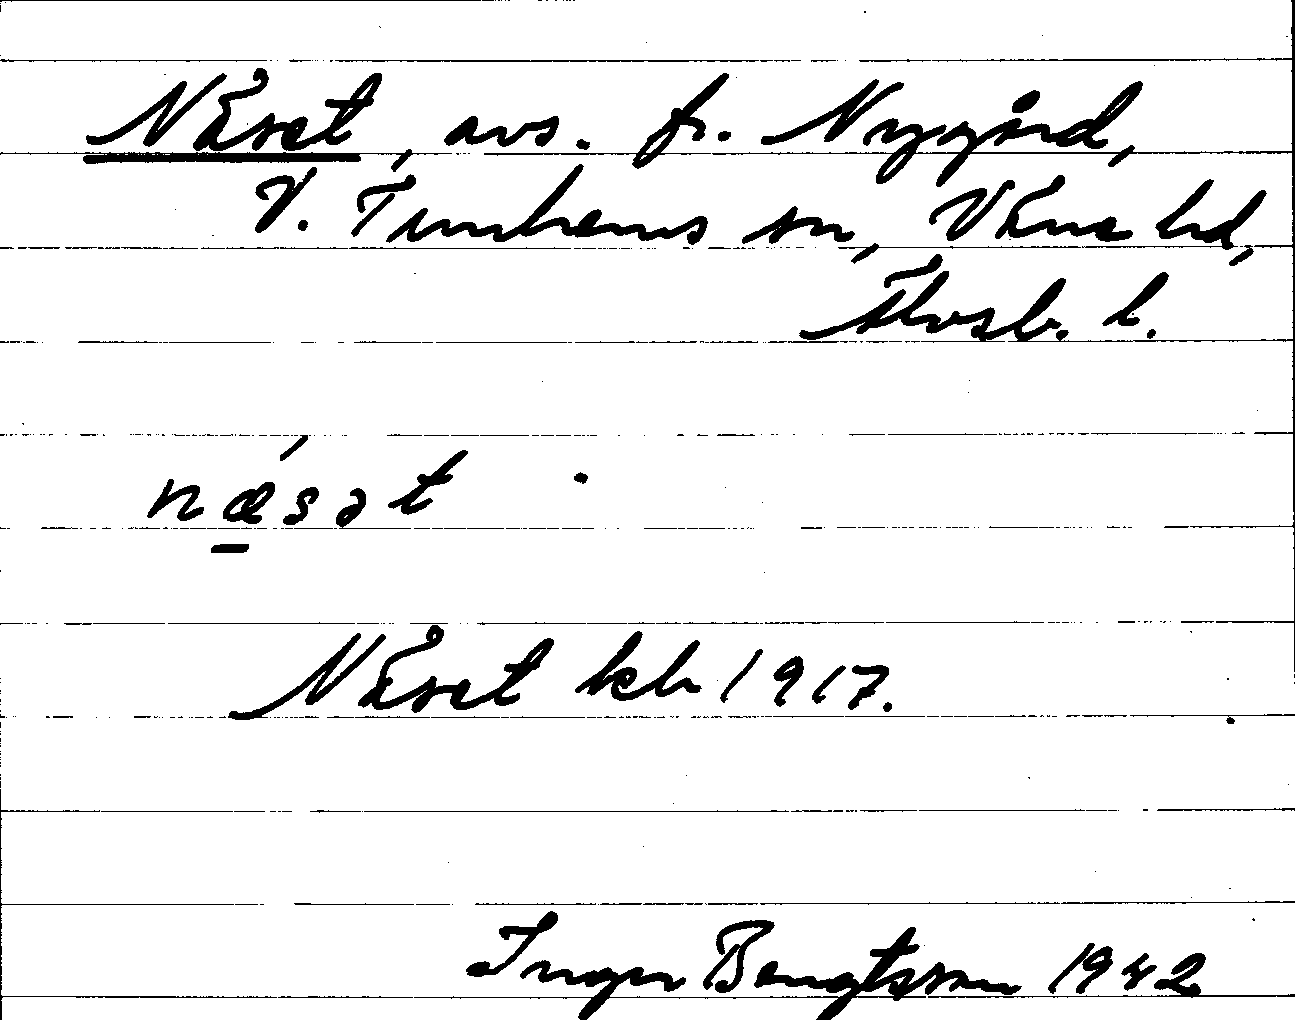 Näset, avs. fr. Nygård,
V. Tunhems sn, Väne hd,
Älvsb. l.
næ̲śət
Näset kb 1917.
Inger Bengtsson 1942